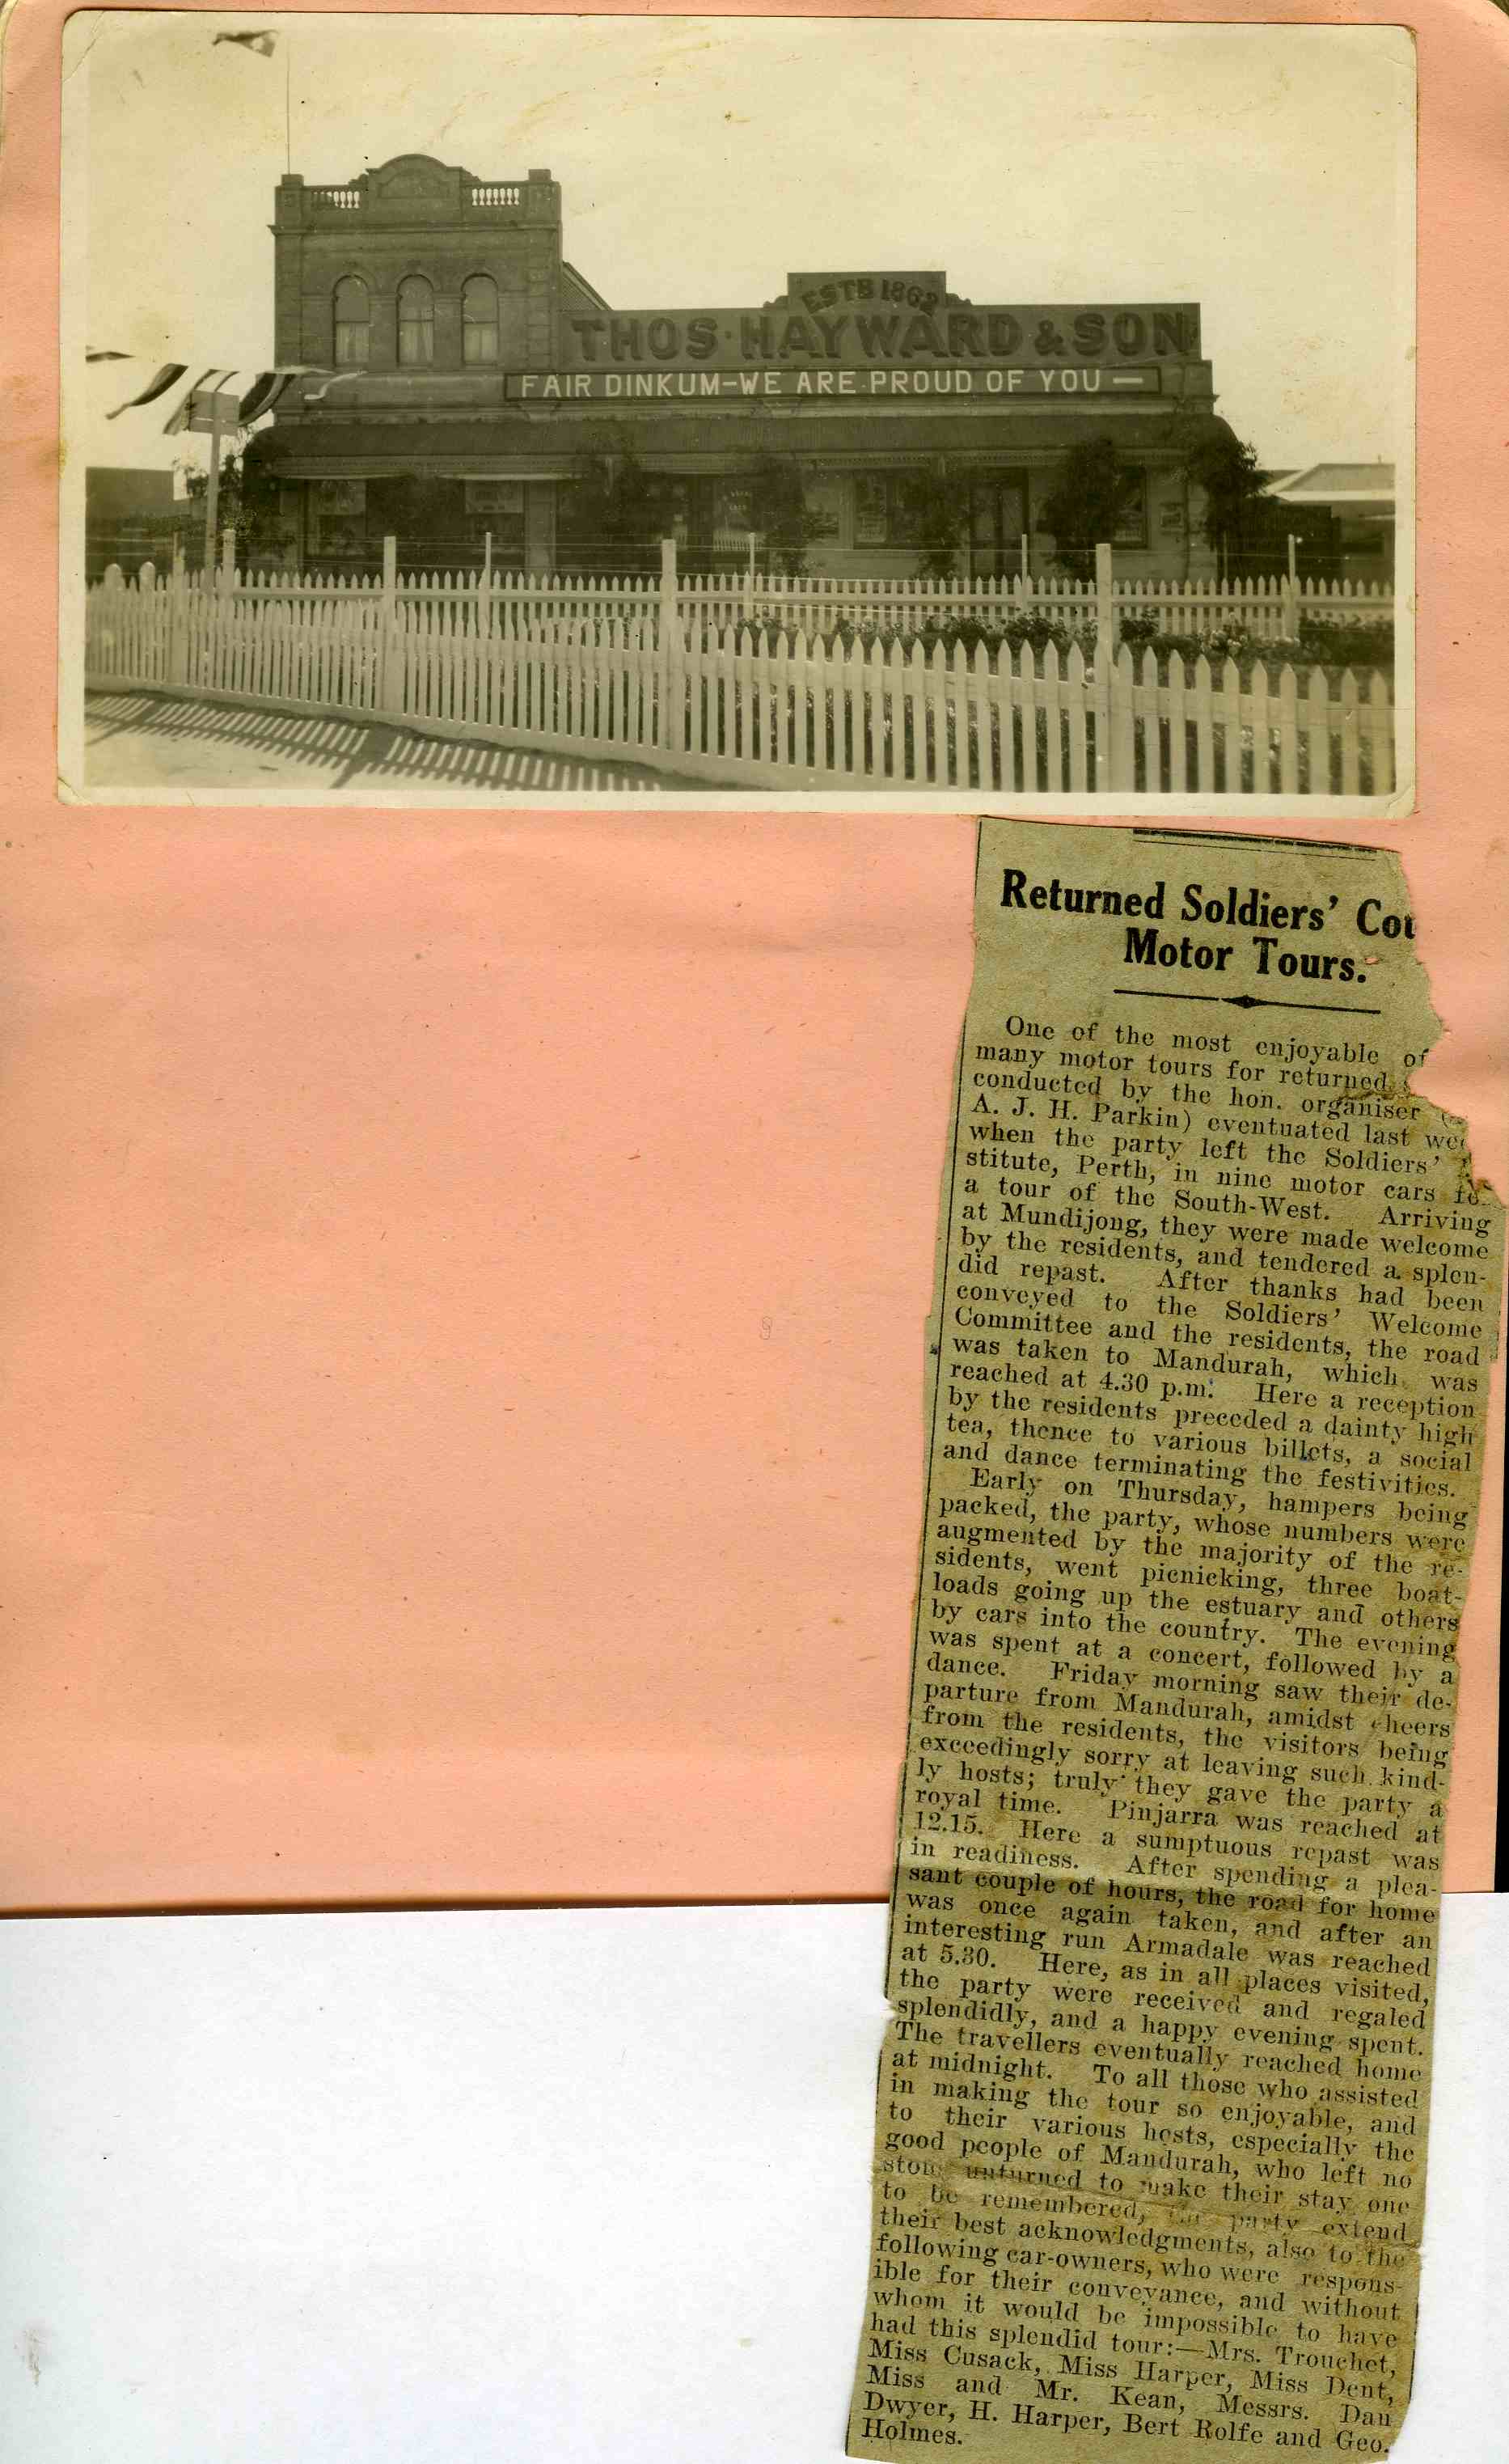 ESTB 1862
THOS. HAYWARD & SON
FAIR DINKUM-WE ARE PROUD OF YOU —
Returned Soldiers'
Motor Tours.
One of the most enjoyable of
many motor tours for returned
conducted by the hon. organiser
A. J. H. Parkin) eventuated last
when the party left the Soldiers'
stitute, Perth, in nine motor cars
a tour of the South-West. Arriving
at Mundijong, they were made welcome
by the residents, and tendered a splen-
did repast. After thanks had been
conveyed to the Soldiers' Welcome
Committee and the residents, the road
was taken to Mandurah, which was
reached at 4.30 p.m. Here a reception
by the residents preceded a dainty high
tea, thence to various billets, a social
and dance terminating the festivities.
Early on Thursday, hampers being
packed, the party, whose numbers were
augmented by the majority of the re-
sidents, went picnicking, three boat-
loads going up the estuary and others
by cars into the country. The evening
was spent at a concert, followed by a
dance. Friday morning saw their de-
parture from Mandurah, amidst cheers
from the residents, the visitors being
exceedingly sorry at leaving such kind-
ly hosts; truly they gave the party a
royal time. Pinjarra was reached at
12.15. Here a sumptuous repast was
in readiness. After spending a plea-
sant couple of hours, the road for home
was once again taken, and after an
interesting run Armadale was reached
at 5.30. Here, as in all places visited,
the party were received and regaled
splendidly, and a happy evening spent.
The travellers eventually reached home
at midnight. To all those who assisted
in making the tour so enjoyable, and
to their various hosts, especially the
good people of Mandurah, who left no
unturned to make their stay one
to be remembered, party extend
their best acknowledgments, also to the
following car-owners, who were respons-
ible for their conveyance, and without
whom it would be impossible to have
had this splendid tour:—Mrs. Trouchet,
Miss Cusack, Miss Harper, Miss Dent,
Miss and Mr. Kean, Messrs. Dan
Dwyer, H. Harper, Bert Rolfe and Geo.
Holmes.